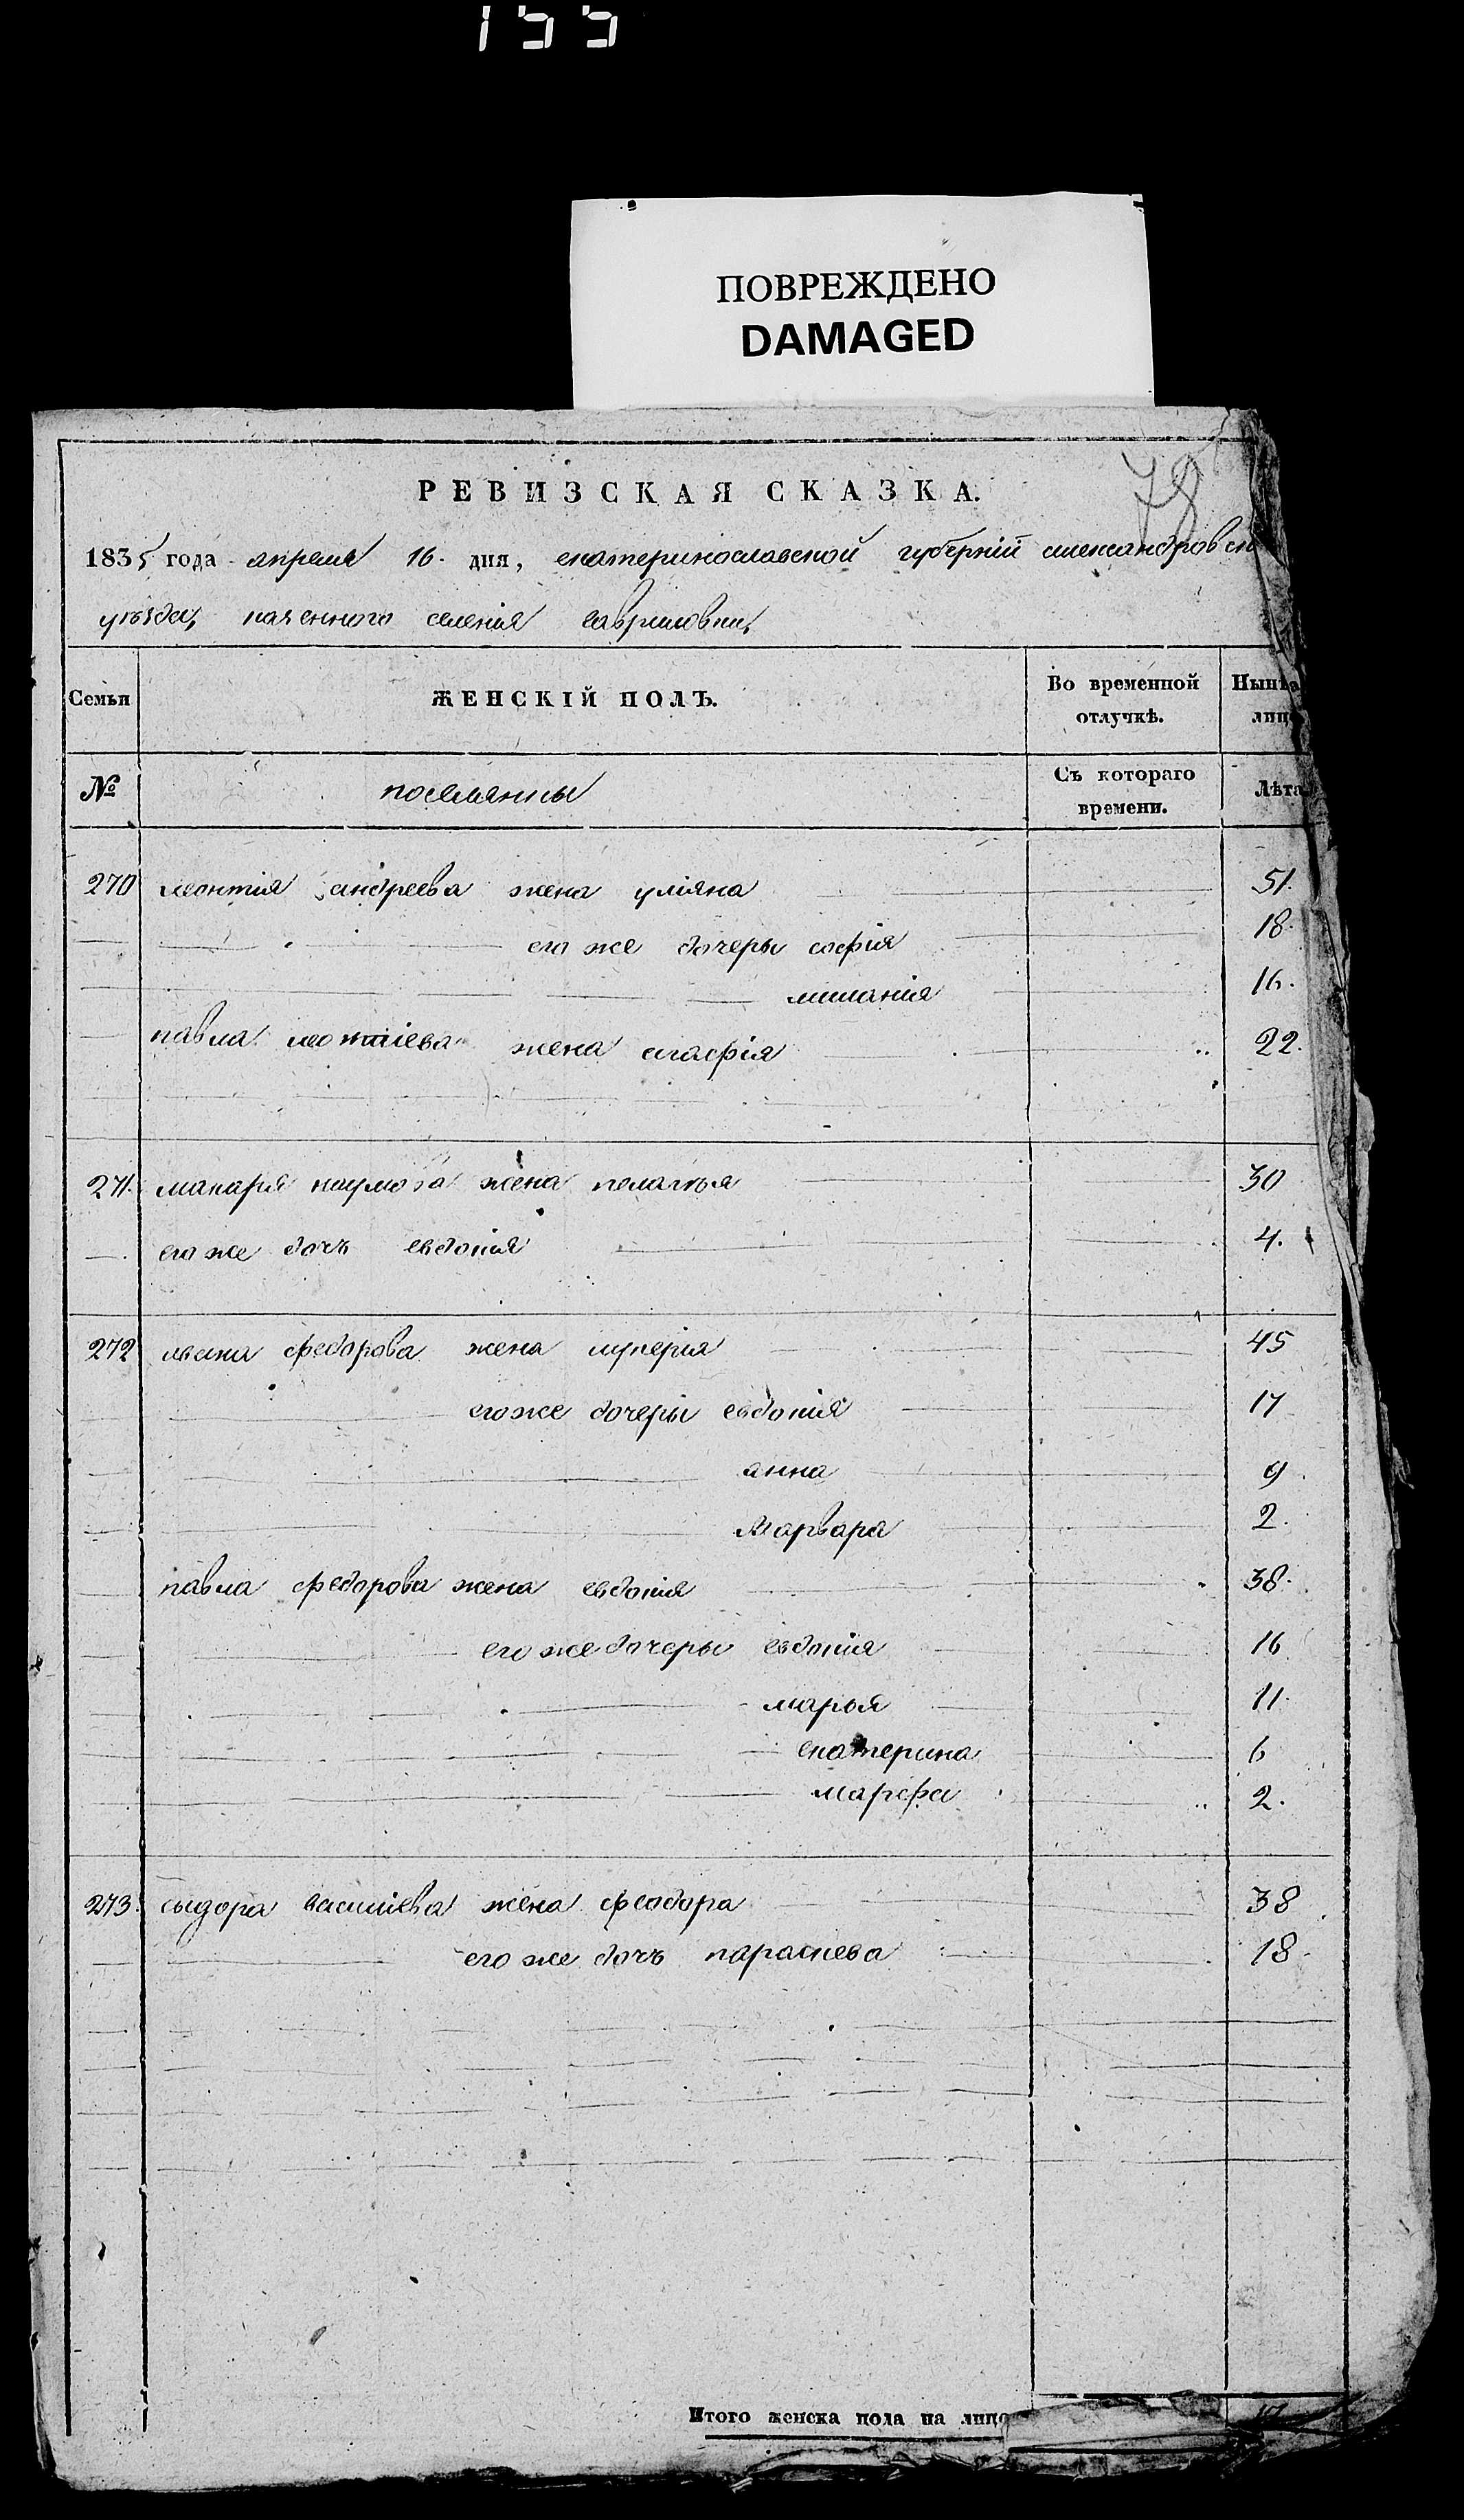 155
ПОВРЕЖДЕНО
DAMAGED
78
РЕВИЗСКАЯ СКАЗКА.
1835 года апреля 16. дня, екатеринославской губерніи александровск
уѣзда, казенного селенія гавриловки,
Семьи ЖЕНСКІЙ ПОЛЪ. Во временной отлучкѣ. Нынѣ лиц
№ поселянсы Съ котораго времени. Лѣта
270 леонтія андреева жена уліяна 51.
его же дочеры софія 18.
миланія 16.
павла леонтіева жена агафія 22.
271. макаря наумова жена пелагѣя 30
его же дочъ евдокія 4.
272 федорова жена лукерія 45
его же дочери евдокія 17
анна 9.
Марвара 2.
павла федорова жена евдокія 38.
его же дочеры евдокія 16
марья 11.
екатерина 6
марфа 2.
273. сыдора василіева жена феодора 38
его же дочъ параскева 18.
Итого женска пола на лицо 17